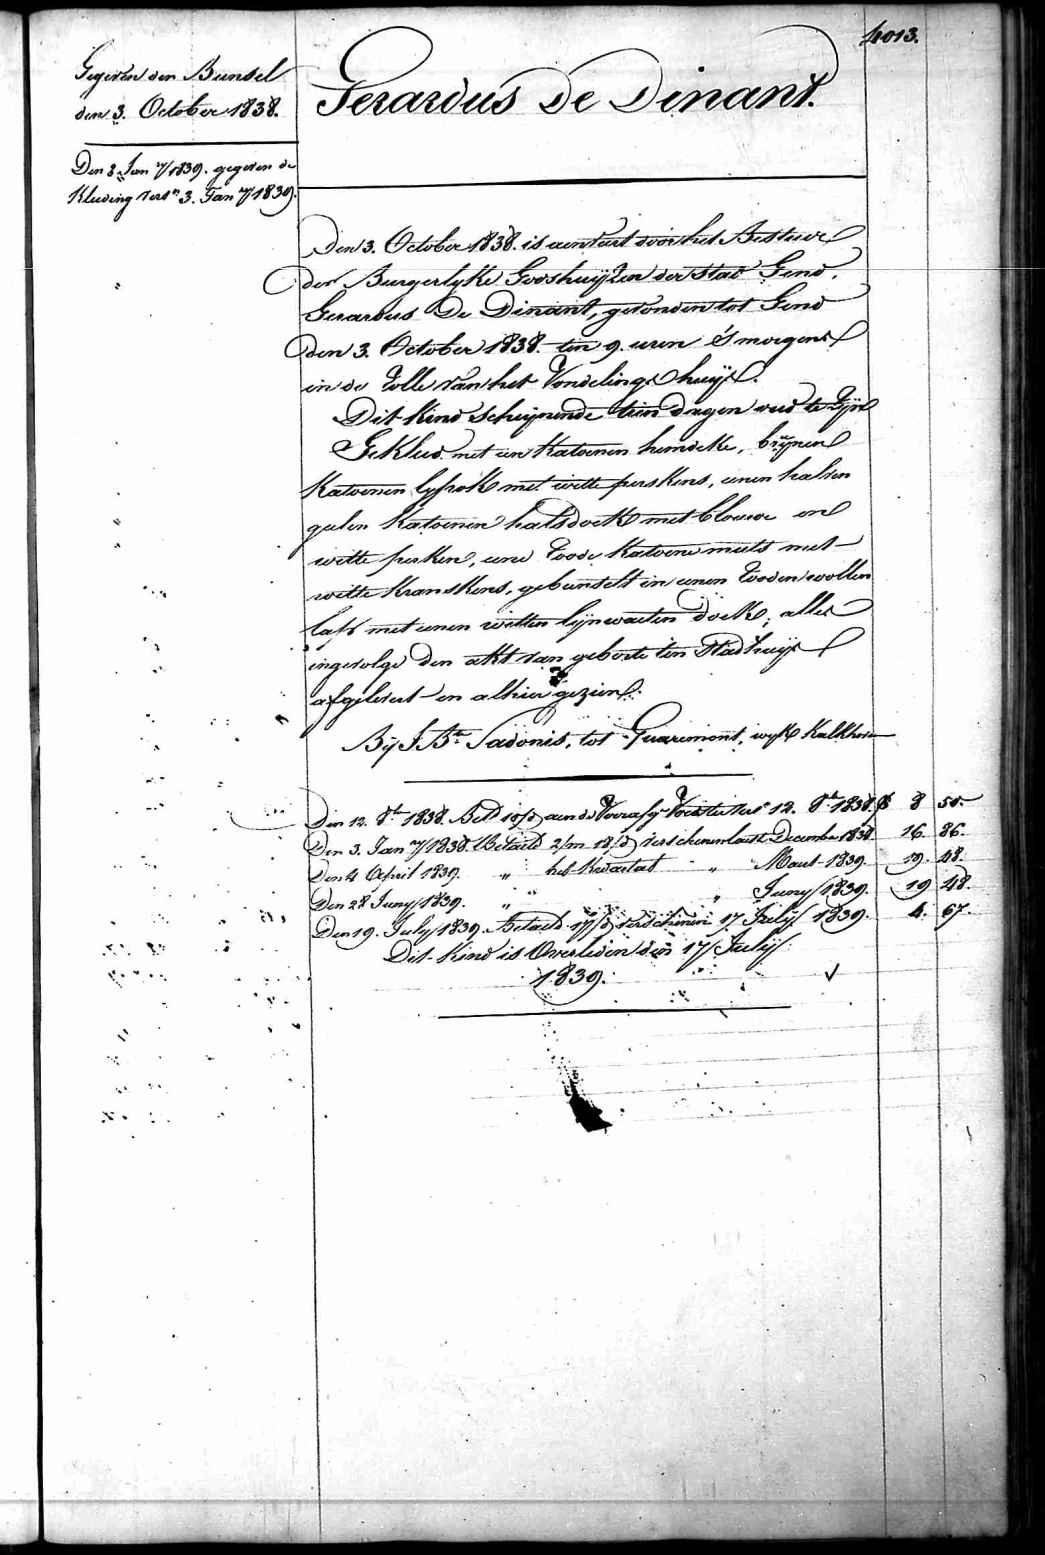 4013.
Gegeven den Bunsel
den 3. October 1838.
Den 3 Jan ry/1839. gegeven de
Kleeding versn 3. Jan ry 1839.
Gerardus De Dinant.
Den 3. October 1838. is aenveert door het Bestuer
der Burgerlyke Godshuijzen der stad Gend,
Gerardus De Dinant, gevonden tot Gend
den 3. October 1838. ten 9. uren 's morgens
in de Rolle van het Vondelings huijs.
Dit kind schijnende tien dagen oud te zijn
Gekleed met een Katoenen hemdeke, bruijnen
Katoenen lyfrok met witte perkens, eenen halven
geelen Katoenen halsdoek met blouwe en
witte perken, eene Roode Katoene muts met
witte kranskens, gebunselt in eenen Rooden wollen
laps met eenen witten lijnwaeten doek; alles
ingevolge den akt van geboorte ten Stadhuijs
afgelevert en alhier gezien.
Bij J. Bte Sadonis, tot Quaremont, wyk Kalkhove
Den 12. 8b 1838. Betd 10/d aen de Voorsorg Voedster verst 12. 8b 1838. fs 8 50.
Den 3. Jan ry/1838. Betaeld 2/m 18/d verschenen laetste December 1838 16. 86.
Den 4 April 1839. " het Kwartael " Maert 1839. 19. 48.
Den 28 Juny/1839. " " " Juny/1839. 19 48.
Den 19. July/1839. Betaeld 17/d verschenen 17 Julij/1839. 4. 67.
Dit kind is Overleden den 17 Julij
1839.